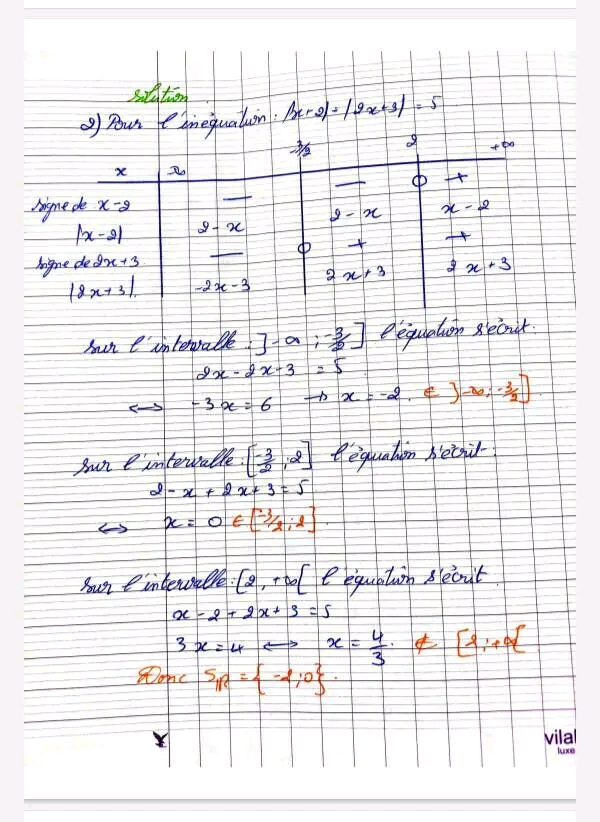 Solution
2) Pour l'inéquation : |x-2| + |2x+3| = 5
x -∞ -3/2 2 +∞
signe de x-2 — — 0 +
|x-2| 2-x 2-x x-2
signe de 2x+3 — 0 + +
|2x+3| -2x-3 2x+3 2x+3
sur l'intervalle : ]-∞ ; -3/2] l'équation s'écrit :
2x-2x-3 = 5
<-> -3x = 6 -> x = -2 ∈ ]-∞ ; -3/2]
sur l'intervalle : [-3/2 ; 2] l'équation s'écrit :
2-x+2x+3 = 5
<-> x = 0 ∈ [-3/2 ; 2]
sur l'intervalle : [2, +∞[ l'équation s'écrit
x-2+2x+3 = 5
3x = 4 <-> x = 4/3 ∉ [2 ; +∞[
Donc S_IR = {-2 ; 0}.
vilal
luxe